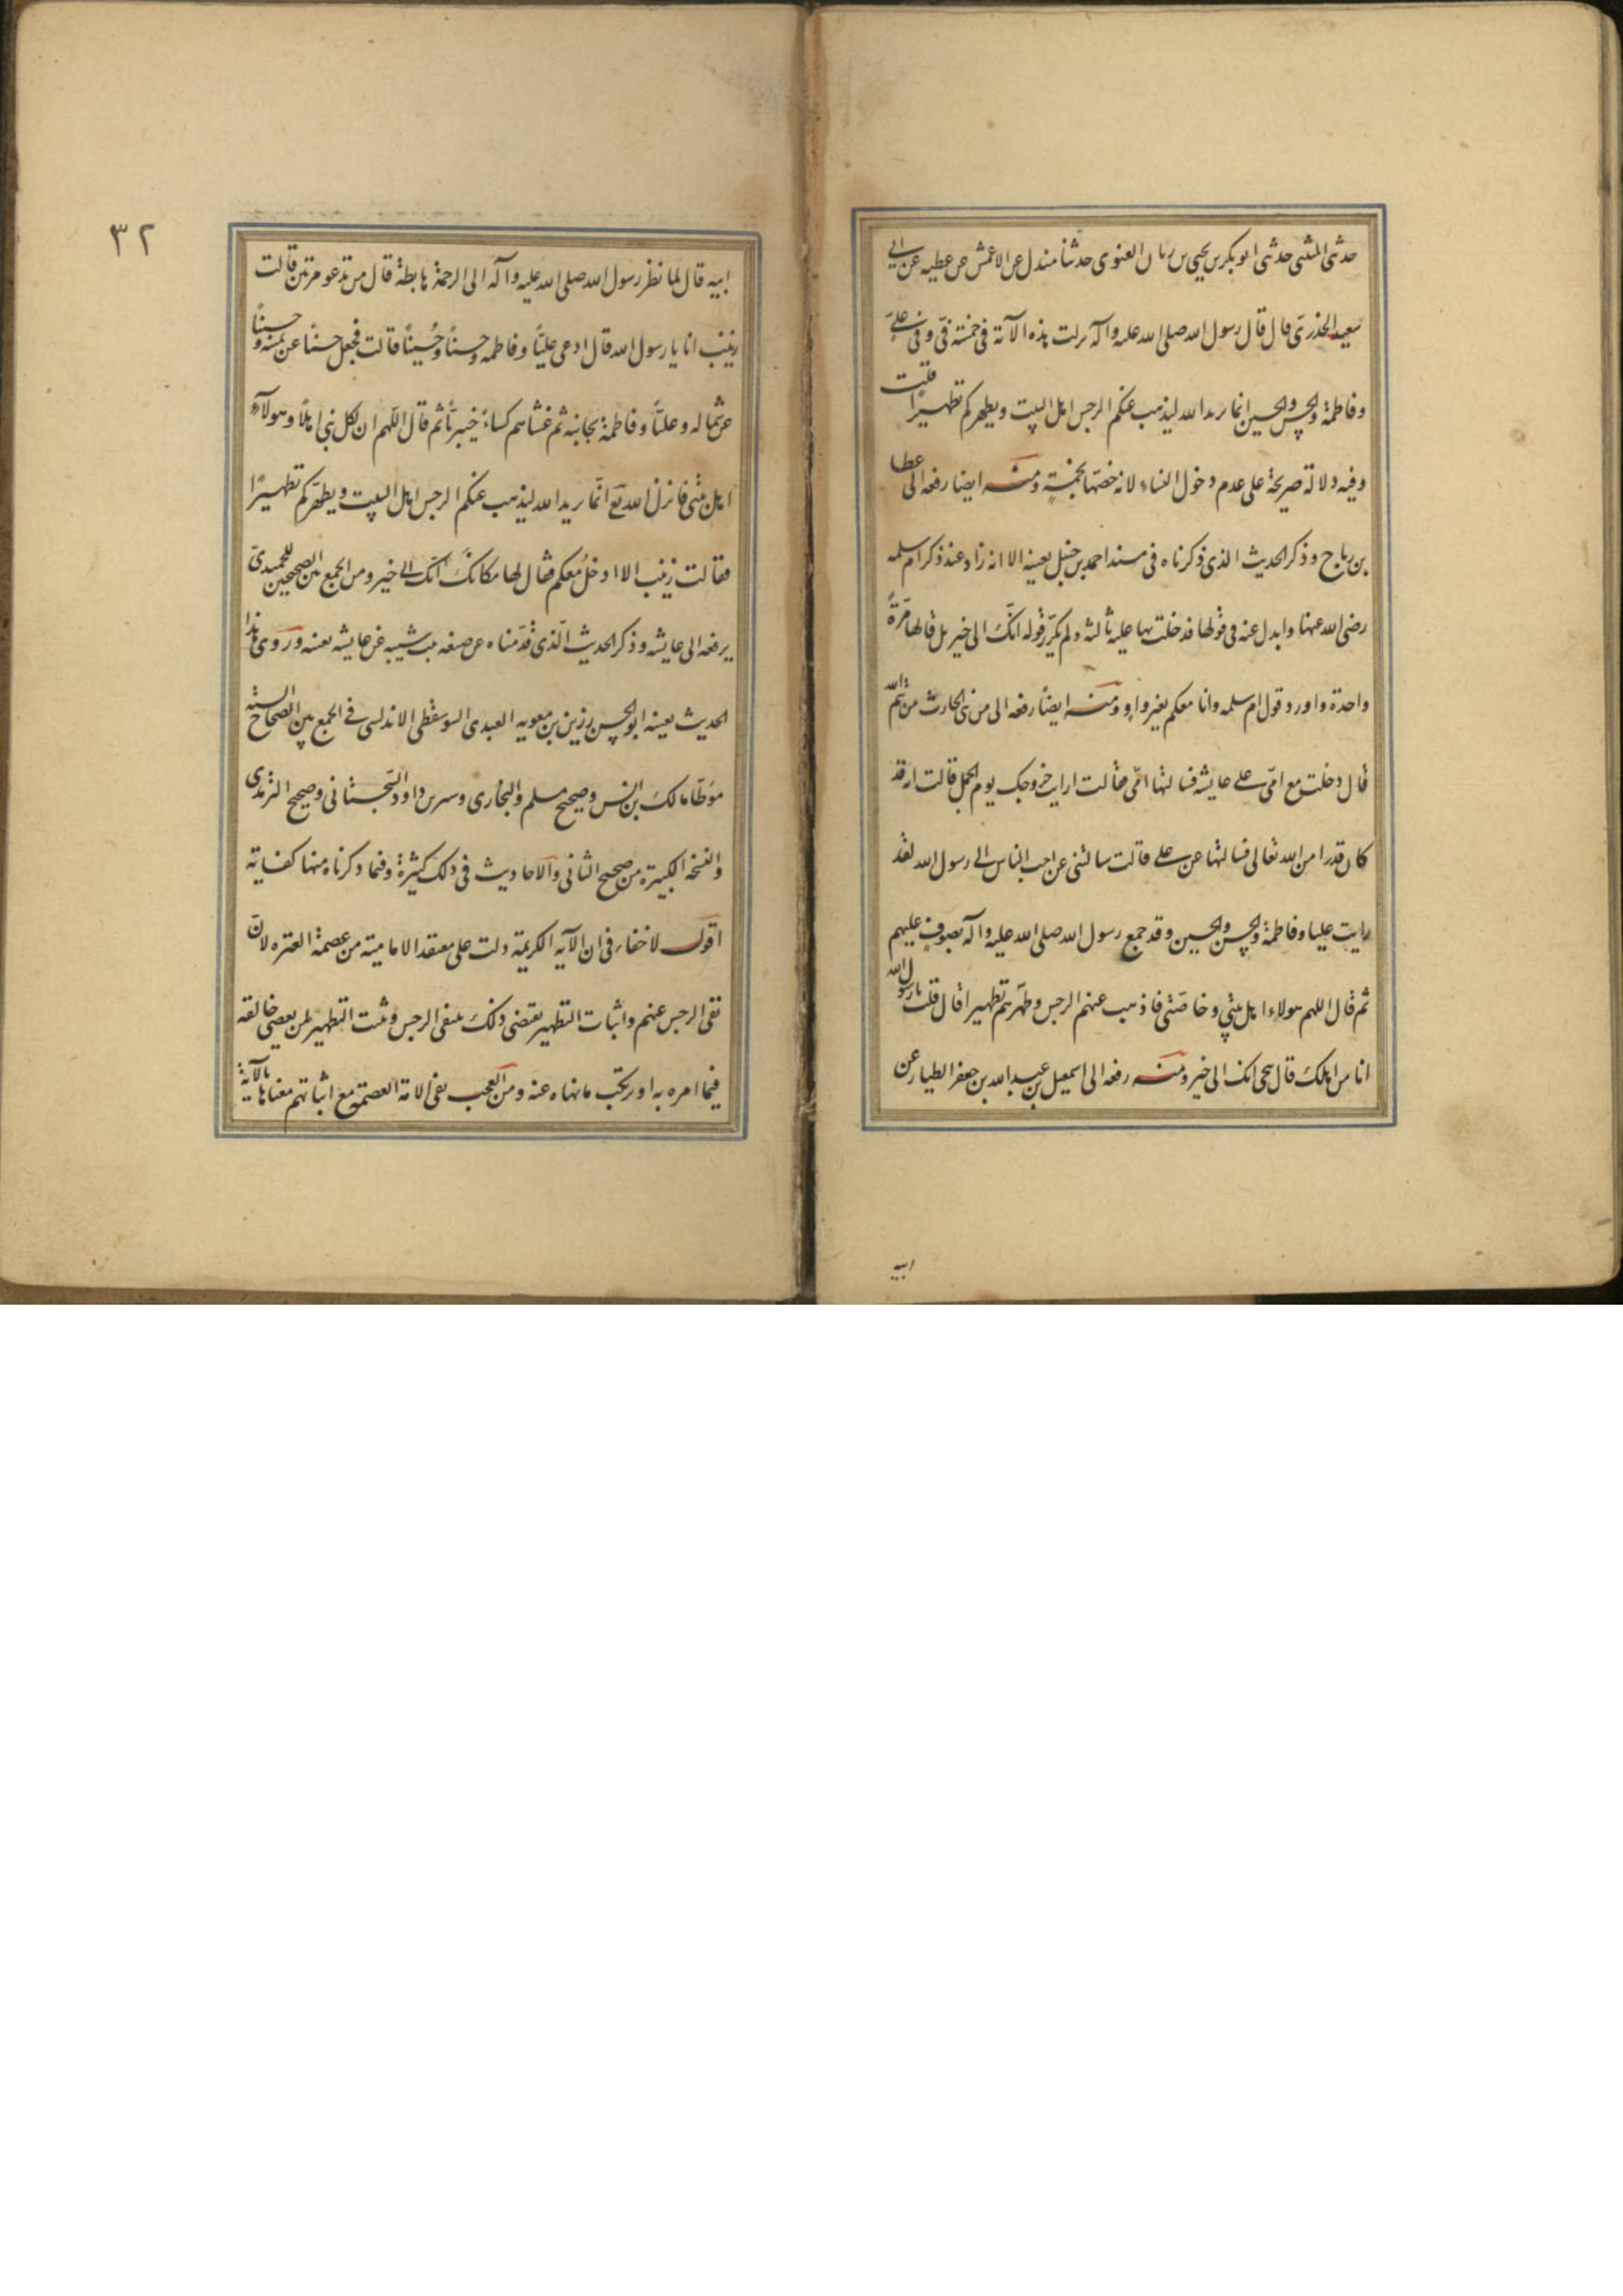 حدثنی المثنی حدثنی ابو بکر بن یحیی بن ربان العنوی حدثنا مندل عن الاعمش عن عطیه عن ابی
سعید الخدریّ قال قال رسول الله صلی الله علیه وآله نزلت هذه الآیة فی خمسة فیّ وفی علیّ
وفاطمة والحسن والحسین انما یرید الله لیذهب عنکم الرجس اهل البیت ویطهرکم تطهیرًا قلت
وفیه دلالة صریحة علی عدم دخول النساء لانه خصّها بخمسةٍ ومنه ایضا رفعه الی عطا
بن رباح وذکر الحدیث الذی ذکرناه فی مسند احمد بن حنبل بعینه الا انه زاد عند ذکر ام سلمه
رضی الله عنها وابدل عنه فی قولها فدخلت بها علیه ثالثه ولم یکرّر قوله انّک الی خیر بل قالها مرّةً
واحدة واورد قول ام سلمه وانا معکم بغیر واوٍ ومنه ایضاً رفعه الی من بنی الحارث من تیم الله
قال دخلت مع امّی علی عایشه فسالتها امّی فقالت ارایت خروجک یوم الجمل قالت انه قد
کان قدرا من الله تعالی فسالتها عن علی قالت سالتنی عن احب الناس الی رسول الله لقد
رایت علیا وفاطمة والحسن والحسین وقد جمع رسول الله صلی الله علیه وآله بصوف علیهم
ثم قال اللهم هولاء اهل بیتی وخاصّتی فاذهب عنهم الرجس وطهّرهم تطهیرا قال قلت یا رسول الله
انا من اهلک قال تنحی انک الی خیر ومنه رفعه الی اسمعیل بن عبد الله بن جعفر الطیار عن
ابیه
٣٢
ابیه قال لما نظر رسول الله صلی الله علیه وآله الی الرحمة هابطة قال من تدعو مرتین قالت
زینب انا یا رسول الله قال ادعی علیّاً وفاطمه وحسناً وحُسیناً قالت فجعل حسناً عن یمنه وحسیناً
عن شماله وعلیّاً وفاطمة تجانبه ثم غشاهم کساءً خیبریّاً ثم قال اللّهم ان لکل نبی اهلاً وهولآء
اهل بیتی فانزل الله تع انّما یرید الله لیذهب عنکم الرجس اهل البیت ویطهّرکم تطهیرًا
فقالت زینب الا ادخلُ معکم فقال لها مکانکَ انّک الی خیر ومن الجمع بین الصحیحین للحمیدیّ
یرفعه الی عایشه وذکر الحدیث الّذی قدّمناه عن صفیه بنت شیبه عن عایشه بعینه وروی هذا
الحدیث بعینه ابو الحسن رزین بن معویه العبدی السرقطی الاندلسی فی الجمع بین الصحاح السته
موطّا مالک بن انس وصحیح مسلم والبخاری وسنن داود السّجستانی وصحیح الترمذی
والنسخة الکبیرة من صحیح النسائی والاحادیث فی ذلک کثیرة وفیما ذکرناه منها کفایة
اقول لا خفاء فی ان الآیه الکریمة دلت علی معتقد الامامیة من عصمة العترة لانّ
نفی الرجس عنهم واثبات التطهیر یقتضی ذلک بنفی الرجس وثبت التطهیر لمن یعصی خالقه
فیما امره به او یرتکب ما نهاه عنه ومن العجب نفی الامة العصمة مع اثباتهم معناها بالآیة